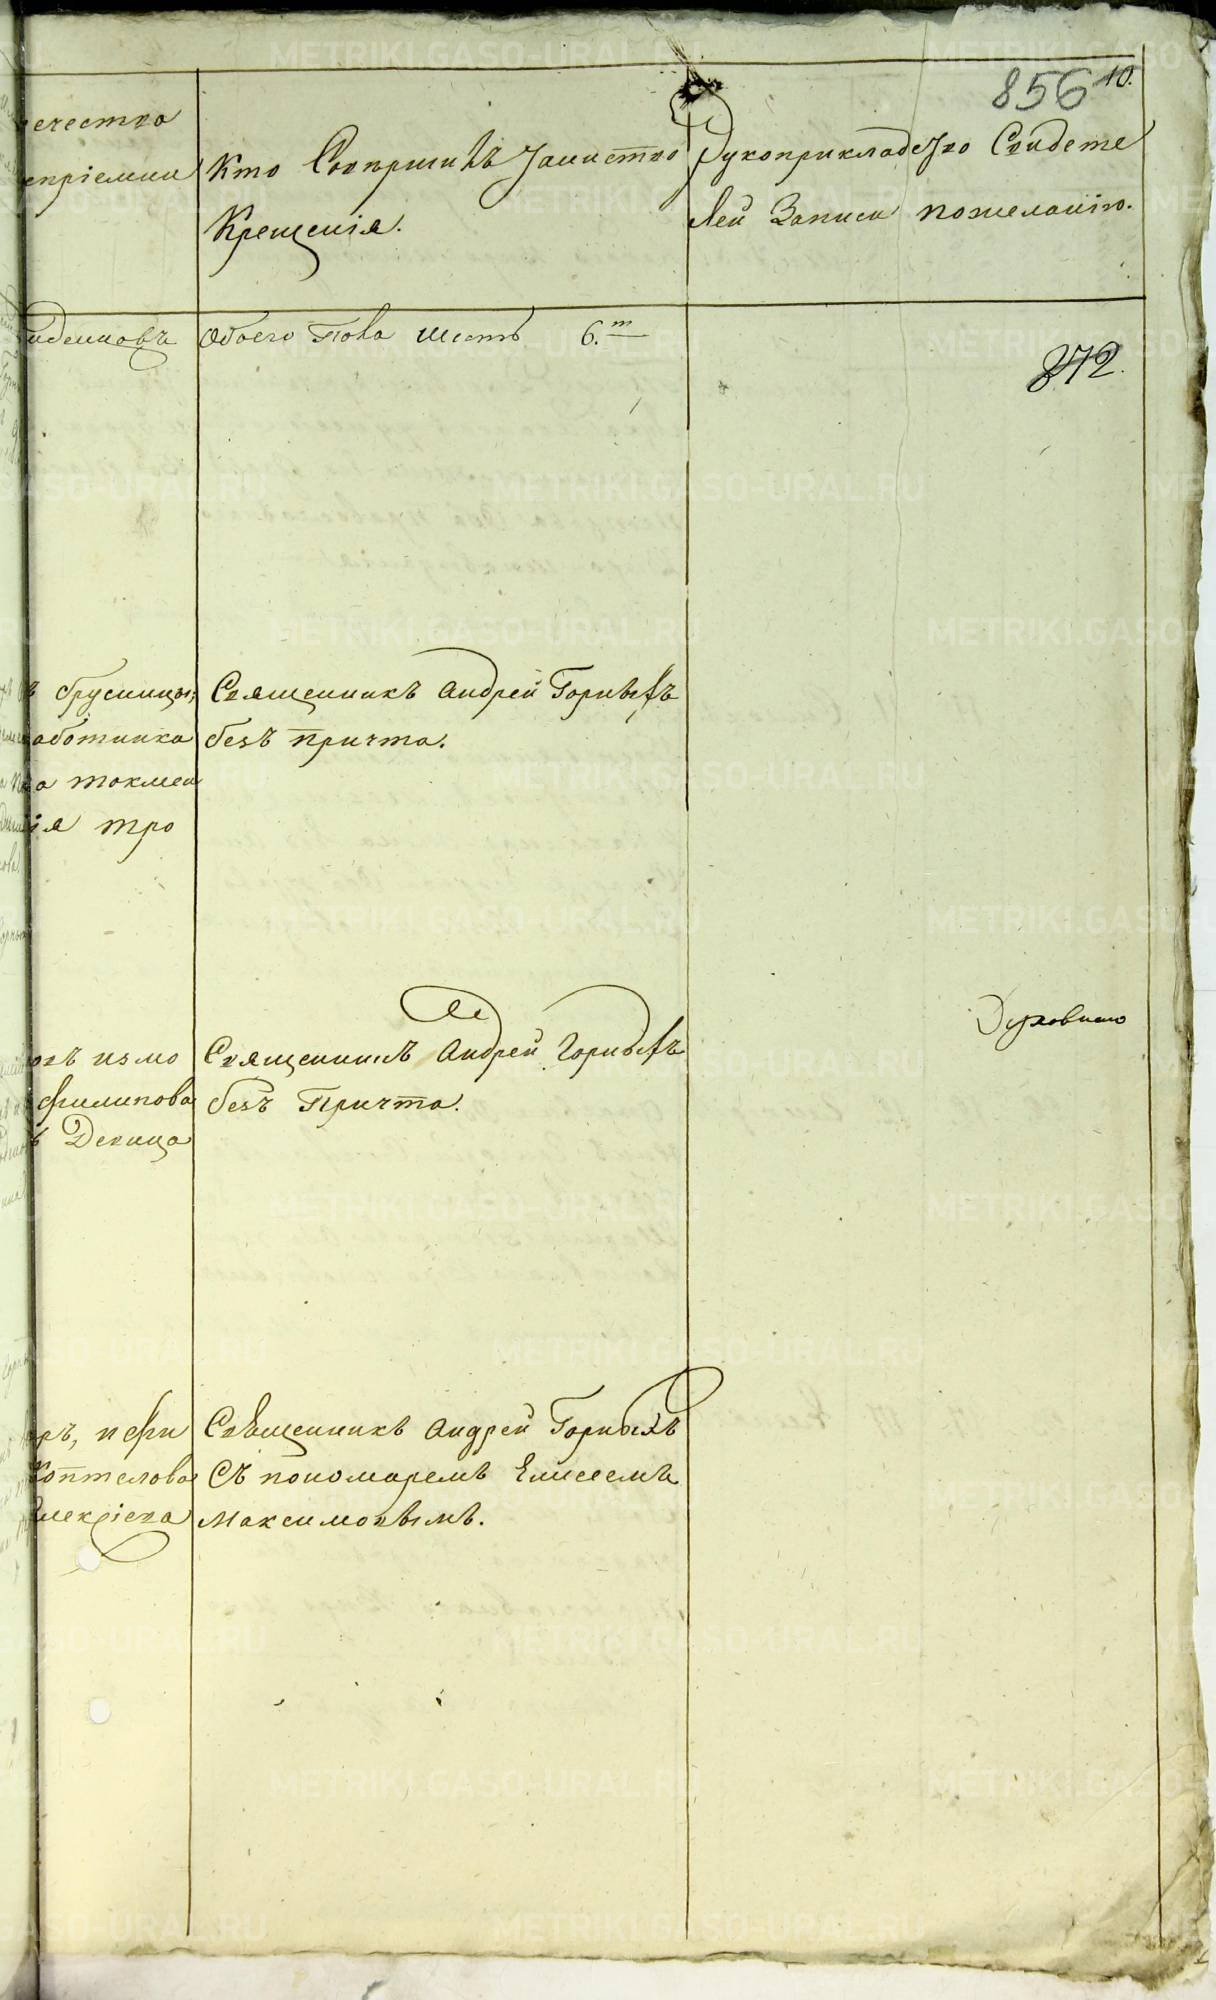 856 10.
ечество
еприемни
Кто Совершилъ Таинство
Крещенія.
Рукоприкладство Свидете
лей Записи пожеланію.
Обоего пола шесть 6.т
872.
брусницы;
аботника
а токмеи
ія тро
Священникъ Андрей Горныхъ
безъ причта.
Духовнаго
измо
филипова
Девица
Священникъ Андрей Горныхъ
безъ Причта.
Коптелова
Алексіева
Священникъ Андрей Горныхъ
Съ пономаремъ Елисеемъ
Максимовымъ.
METRIKI.GASO-URAL.RU